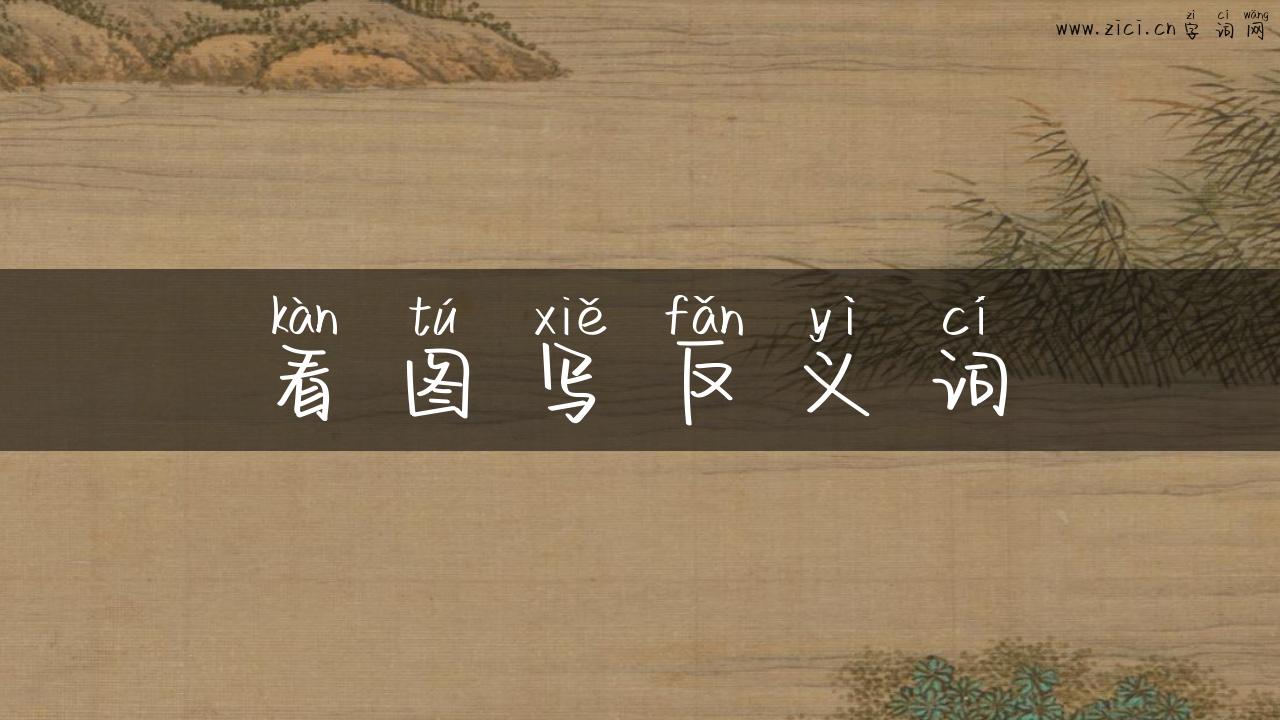 zì cí wǎng
www.zici.cn 字 词 网
kàn tú xiě fǎn yì cí
看 图 写 反 义 词